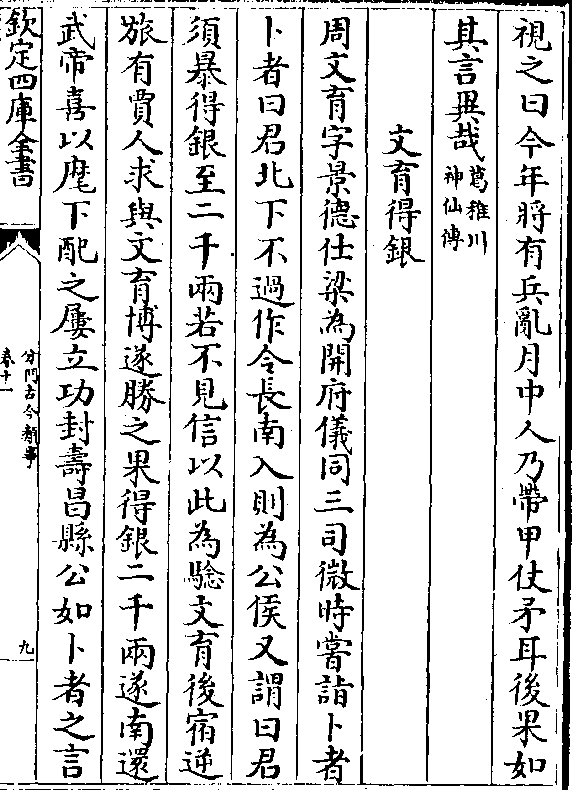 視之曰今年將有兵亂月中人乃帶甲仗矛耳後果如
其言異哉葛稚川
神仙傳
文育得銀
周文育字景德仕梁為開府儀同三司微時嘗詣卜者
卜者曰君北下不過作令長南入則為公侯又謂曰君
須暴得銀至二千兩若不見信以此為驗文育後宿逆
旅有賈人求與文育博遂勝之果得銀二千兩遂南還
武帝喜以麾下配之屢立功封壽昌縣公如卜者之言
欽定四庫全書
分門古今類事
卷十一
九